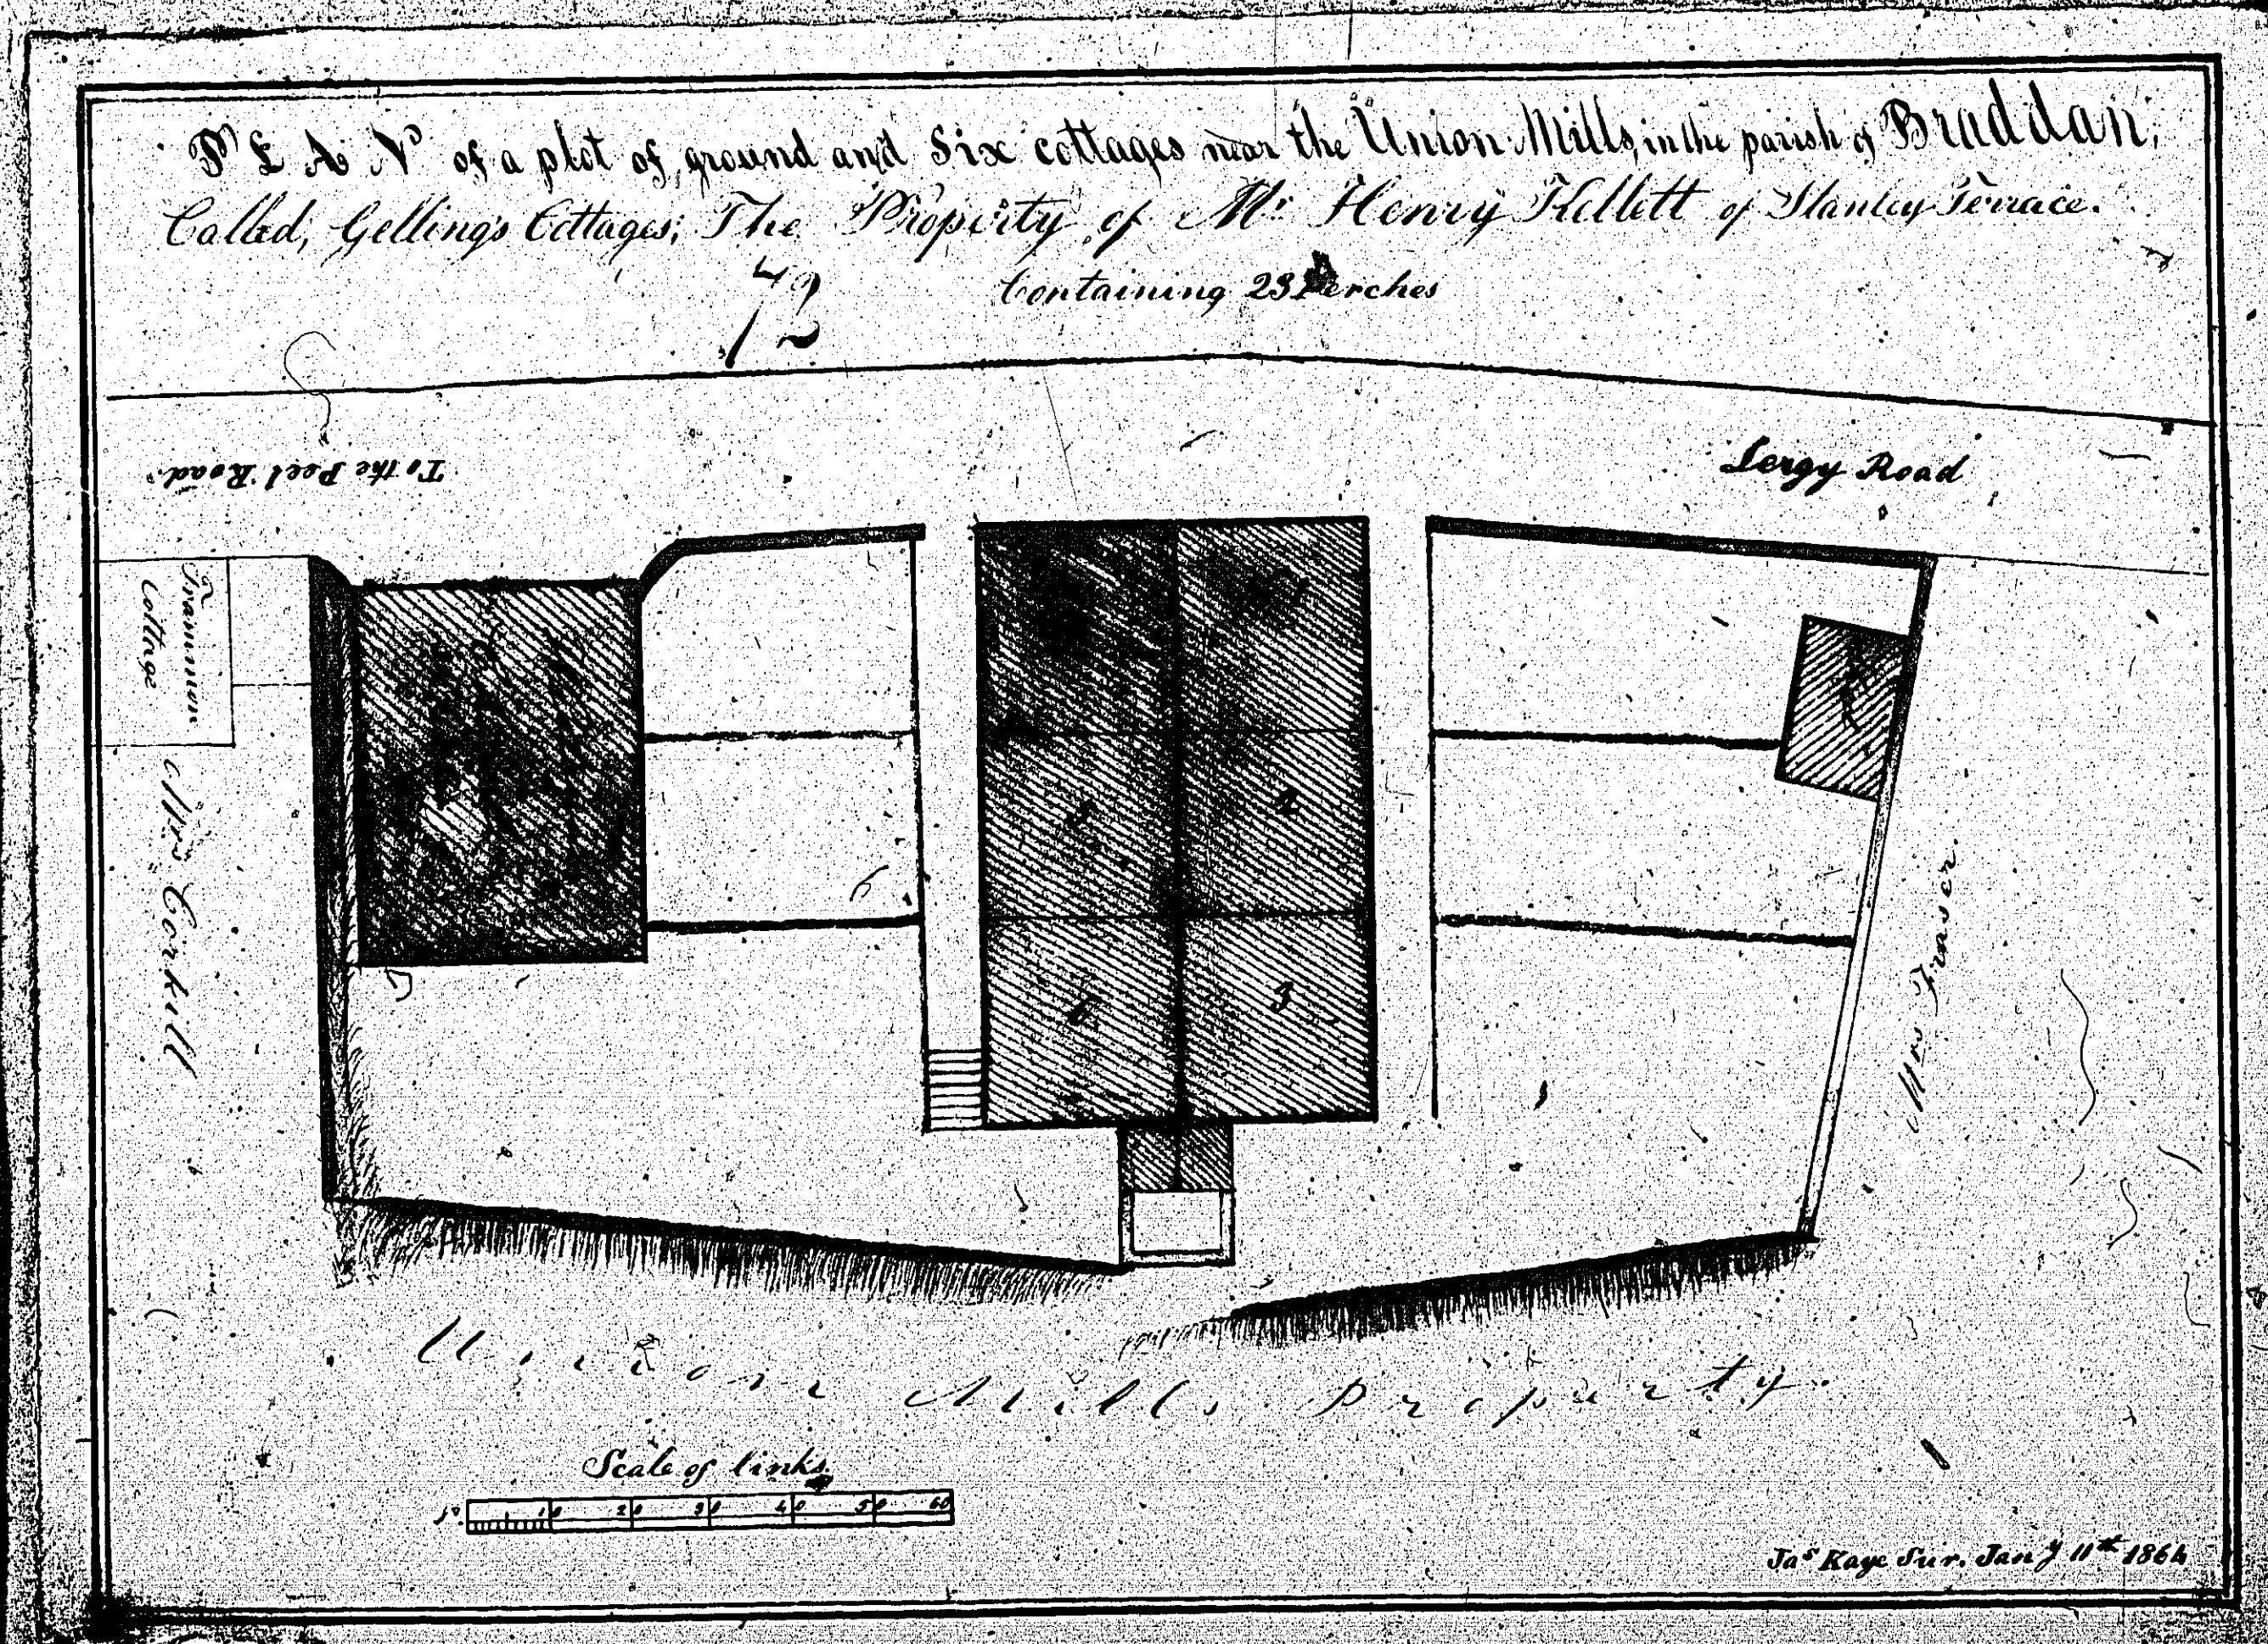 PLAN of a plot of ground and Six cottages near the Union Mills, in the parish of Braddan,
Called, Gelling's Cottages; The Property of Mr Henry Kellett of Stanley Terrace.
72
Containing 23 Perches
To the Peel Road.
Lergy Road
Trammon
Cottage
2
3
Mrs Corkill
Mrs Fraser.
Union Mills Property
Scale of links
10 20 30 40 50 60
Jas Kaye Sur. Jany 11th 1864